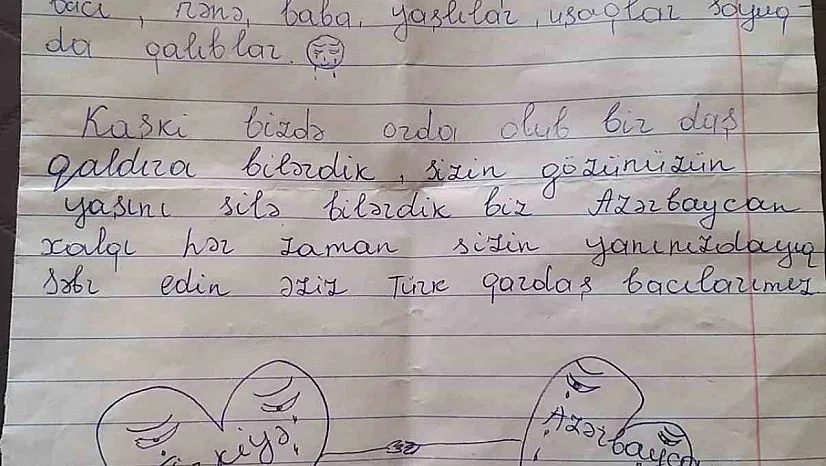 bacı, nənə, baba, yaşlılar, uşaqlar soyuq-
da qalıblar.
Kaşki bizdə orda olub bir daş
qaldıra bilərdik, sizin gözünüzün
yaşını silə bilərdik biz Azərbaycan
xalqı hər zaman sizin yanınızdayıq
Səbr edin əziz Türk qardaş bacılarımız
Azərbayca